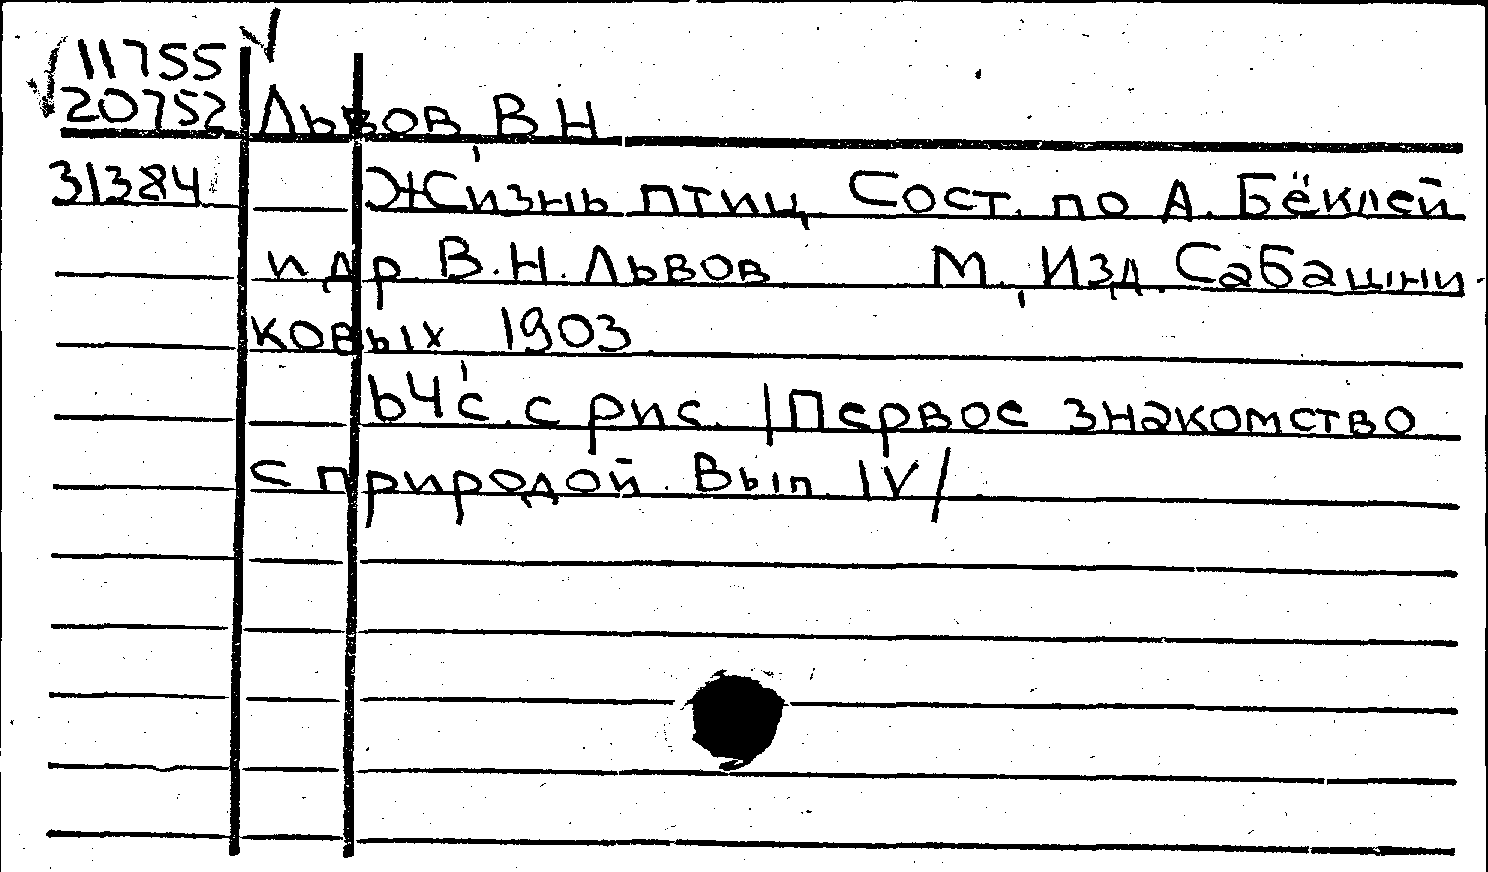 11755
20752 Львов В Н
31384 Жизнь птиц Сост. по А. Бёклей
и др В.Н. Львов М., Изд. Сабашни
ковых 1903
64 с. с рис. /Первое знакомство
с природой. Вып. IV/